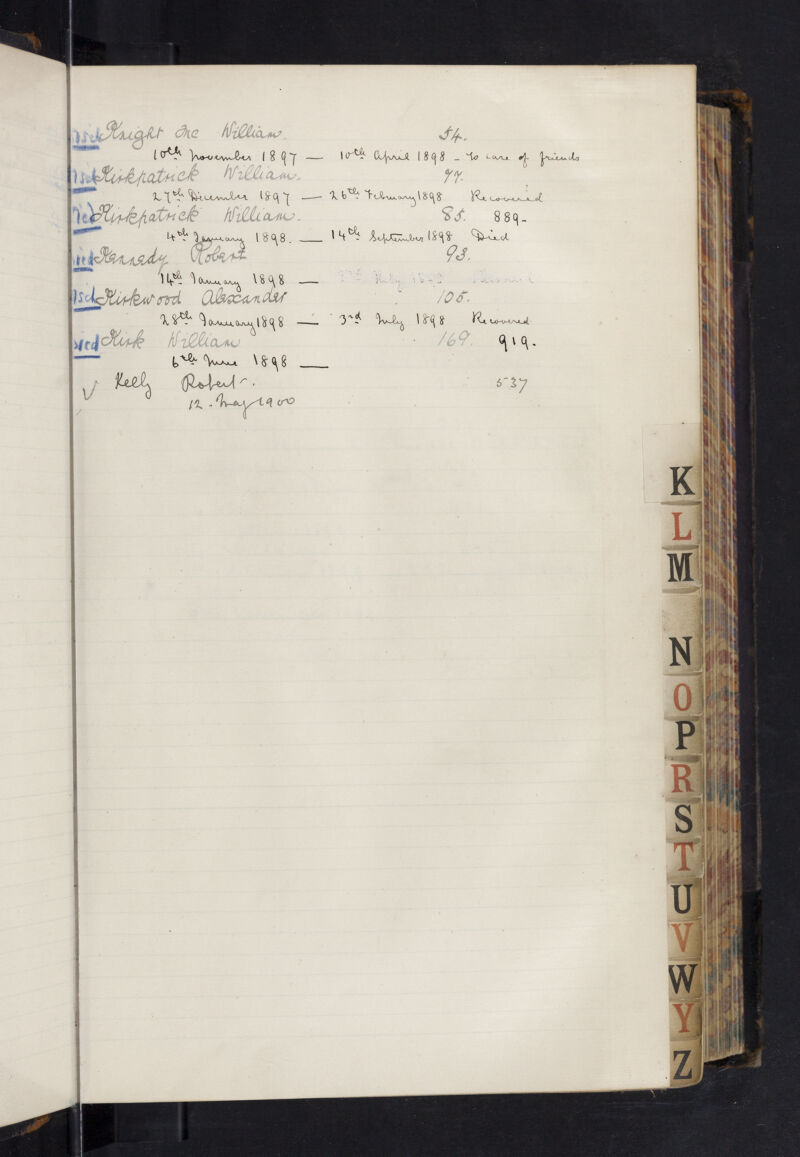 Knight Mc William. 54.
10th November 1897 — 10th April 1898 - To care of friends
Kirkpatrick William. 77.
27th December 1897 — 26th February 1898 Recovered
Kirkpatrick William. 85. 889-
4th January 1898. — 14th September 1898 Died
Kennedy Robert 93.
14th January 1898 —
Kirkwood Alexander 105.
28th January 1898 — 3rd July 1898 Recovered
Kirk William 169. 919-
6th June 1898 —
Kelly Robert. 537
12 - May 1900
K
L
M
N
O
P
R
S
T
U
V
W
Y
Z